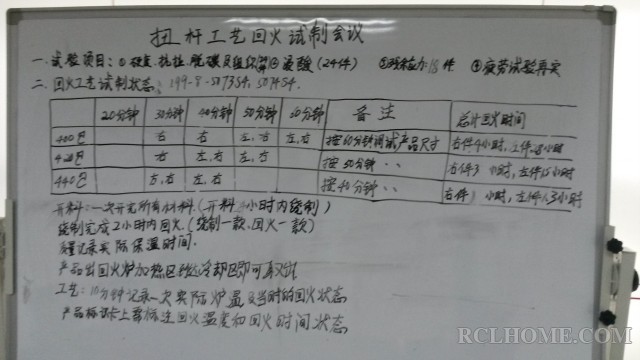 扭杆工艺回火试制会议
一.试验项目:①硬度.抗拉.脱碳及组织 ②盐酸(24件) ③残余应力15件 ④疲劳试验再定
二.回火工艺试制状态:199-8-5073SA.5074SA.
20分钟 30分钟 40分钟 50分钟 60分钟 备注 总计回火时间
400℃ 右 右 左.右 左.右 按60分钟调试产品尺寸 右件4小时,左件 小时
420℃ 右 左.右 左.右 按50分钟 〃 右件3 小时,左件 小时
440℃ 左.右 左.右 按40分钟 〃 右件 小时,左件 小时
开料:一次开完所有材料.(开料 小时内绕制)
绕制完成2小时内回火.(绕制一款.回火一款)
记录实际保温时间.
产品出回火炉加热区 冷却区即可
工艺:10分钟记录一次实际炉温及当时的回火状态
产品标识卡上要标注回火温度和回火时间状态
RCLHOME.COM